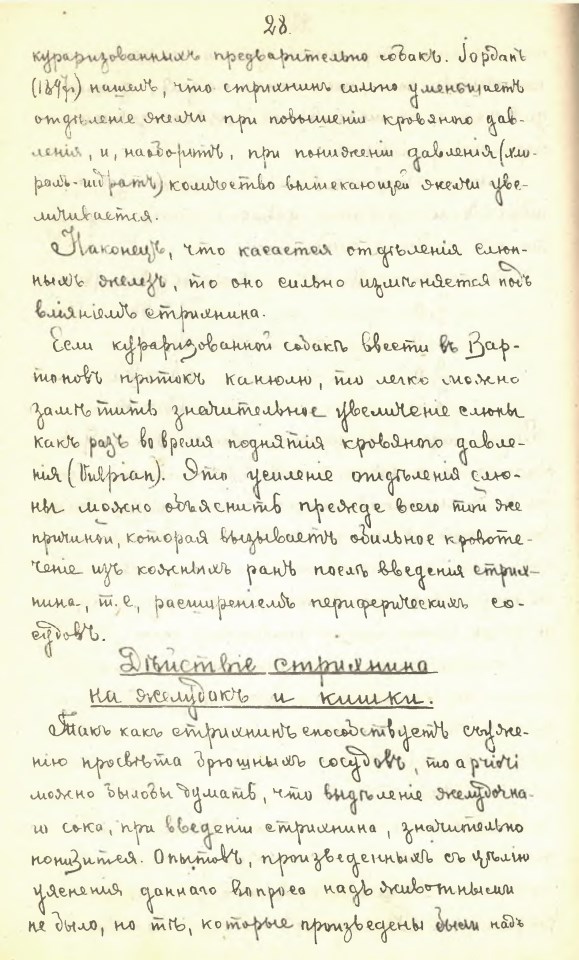 28.
кураризованныхъ предварительно собакъ. Jордан
(1897) нашелъ, что стрихнинъ сильно уменьшаетъ
отдѣленіе желчи при повышеніи кровяного дав-
ленія, и, наоборотъ, при пониженіи давленія (хло-
ралъ-гидратъ) количество вытекающей желчи уве-
личивается.
Наконецъ, что касается отдѣленія слюн-
ныхъ железъ, то оно сильно измѣняется подъ
вліяніемъ стрихнина.
Если кураризованной собакѣ ввести въ Вар-
тоновъ протокъ канюлю, то легко можно
замѣтить значительное увеличеніе слюны
какъ разъ во время поднятія кровяного давле-
нія (Vulpian). Это усиленіе отдѣленія слю-
ны можно объяснить прежде всего той же
причиной, которая вызываетъ обильное кровоте-
ченіе изъ кожныхъ ранъ послѣ введенія стрих-
нина, т.е, расширеніемъ периферическихъ со-
судовъ.
Дѣйствіе стрихнина
на желудокъ и кишки.
Такъ какъ стрихнинъ способствуетъ съуже-
нію просвѣта брюшныхъ сосудовъ, то apriori
можно было бы думать, что выдѣленіе желудочна-
го сока, при введеніи стрихнина, значительно
понизится. Опытовъ, произведенныхъ съ цѣлію
уясненія даннаго вопроса надъ животными
не было, но тѣ, которые произведены были надъ